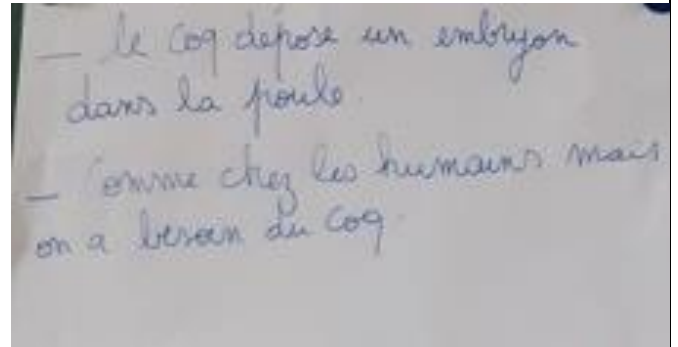 _ le coq dépose un embryon
dans la poule.
_ Comme chez les humains mais
on a besoin du coq.